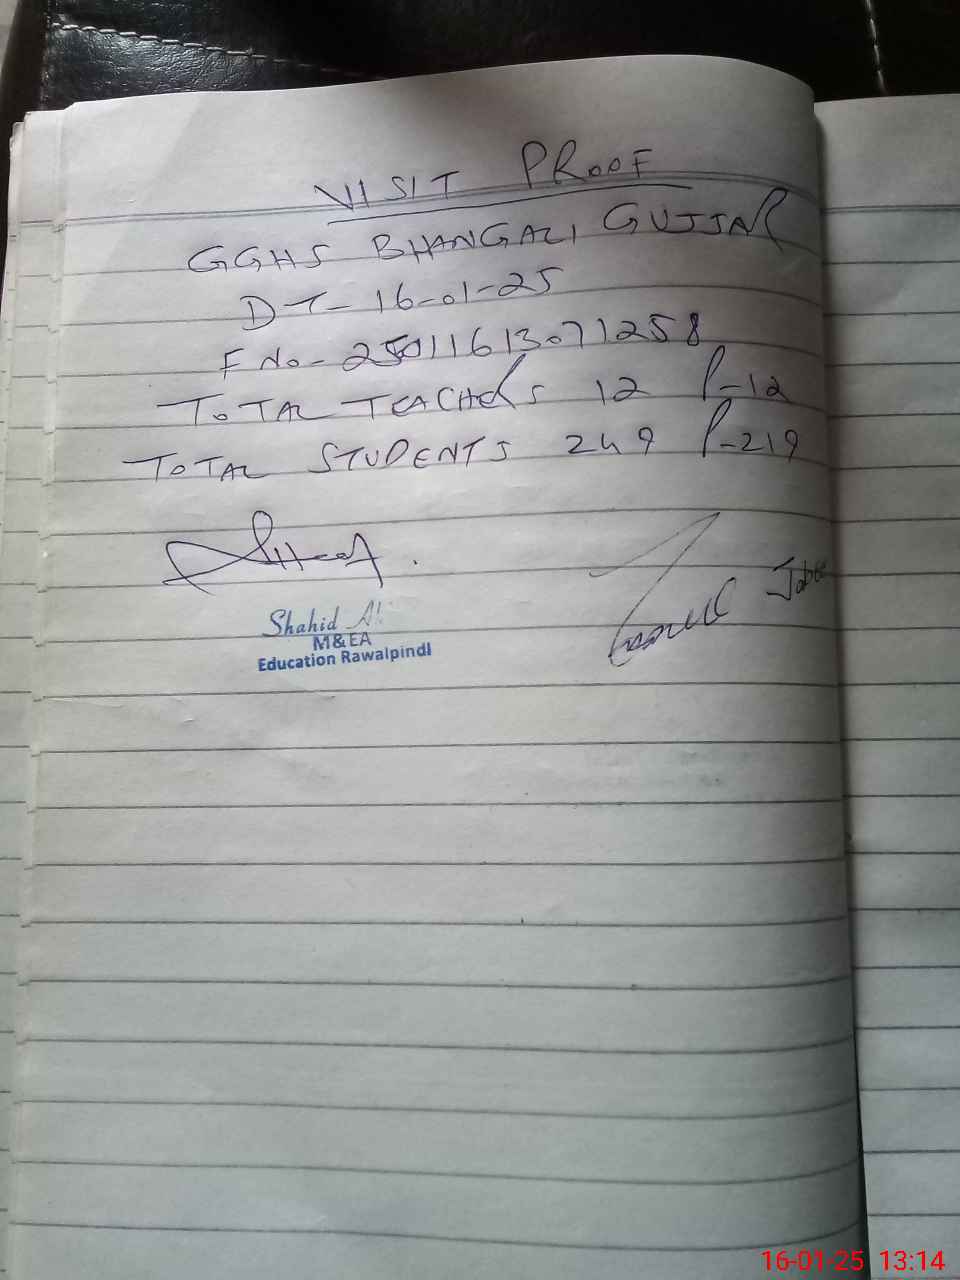 VISIT PROOF
GGHS BHANGALI GUJJAR
DT- 16-01-25
F No- 25011613071258
TOTAL TEACHERS 12 P-12
TOTAL STUDENTS 249 P-219
Shahid Ali
M&EA
Education Rawalpindi
16-01-25 13:14